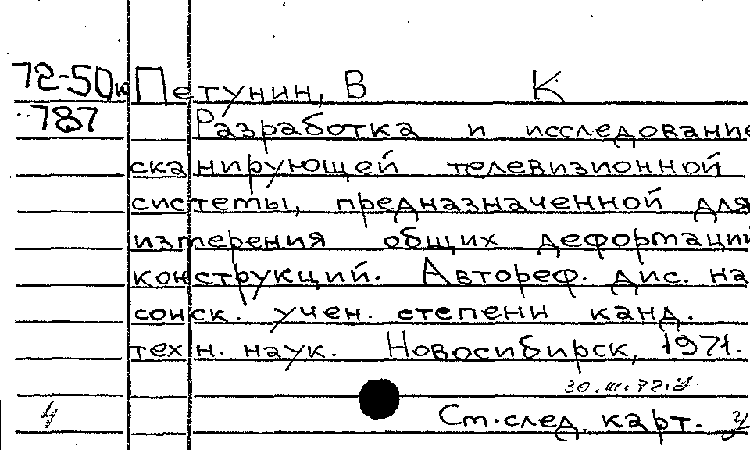 72-50к Петунин, В К
787 Разработка и исследование
сканирующей телевизионной
системы, предназначенной для
измерения общих деформаций
конструкций. Автореф. дис. на
соиск. учен. степени канд.
техн. наук. Новосибирск, 1971.
30.III.72.
См. след. карт.